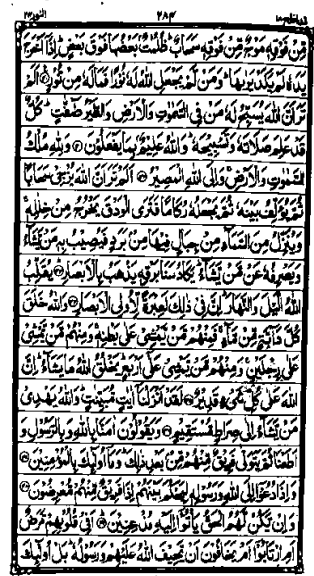 قد افلح ١٨ ٢٨٤ النور ٢٤
مِّنْ فَوْقِهٖ مَوْجٌ مِّنْ فَوْقِهٖ سَحَابٌ ؕ ظُلُمٰتٌۢ بَعْضُهَا فَوْقَ بَعْضٍ ؕ اِذَاۤ اَخْرَجَ
يَدَهٗ لَمْ يَكَدْ يَرٰىهَا ؕ وَمَنْ لَّمْ يَجْعَلِ اللّٰهُ لَهٗ نُوْرًا فَمَا لَهٗ مِنْ نُّوْرٍ ۝ اَلَمْ
تَرَ اَنَّ اللّٰهَ يُسَبِّحُ لَهٗ مَنْ فِى السَّمٰوٰتِ وَالْاَرْضِ وَالطَّيْرُ صٰٓفّٰتٍ ؕ كُلٌّ
قَدْ عَلِمَ صَلَاتَهٗ وَتَسْبِيْحَهٗ ؕ وَاللّٰهُ عَلِيْمٌۢ بِمَا يَفْعَلُوْنَ ۝ وَلِلّٰهِ مُلْكُ
السَّمٰوٰتِ وَالْاَرْضِ ۚ وَاِلَى اللّٰهِ الْمَصِيْرُ ۝ اَلَمْ تَرَ اَنَّ اللّٰهَ يُزْجِىْ سَحَابًا
ثُمَّ يُؤَلِّفُ بَيْنَهٗ ثُمَّ يَجْعَلُهٗ رُكَامًا فَتَرَى الْوَدْقَ يَخْرُجُ مِنْ خِلٰلِهٖ ۚ
وَيُنَزِّلُ مِنَ السَّمَآءِ مِنْ جِبَالٍ فِيْهَا مِنْۢ بَرَدٍ فَيُصِيْبُ بِهٖ مَنْ يَّشَآءُ
وَيَصْرِفُهٗ عَنْ مَّنْ يَّشَآءُ ؕ يَكَادُ سَنَا بَرْقِهٖ يَذْهَبُ بِالْاَبْصَارِ ۝ يُقَلِّبُ
اللّٰهُ الَّيْلَ وَالنَّهَارَ ؕ اِنَّ فِىْ ذٰلِكَ لَعِبْرَةً لِّاُولِى الْاَبْصَارِ ۝ وَاللّٰهُ خَلَقَ
كُلَّ دَآبَّةٍ مِّنْ مَّآءٍ ۚ فَمِنْهُمْ مَّنْ يَّمْشِىْ عَلٰى بَطْنِهٖ ۚ وَمِنْهُمْ مَّنْ يَّمْشِىْ
عَلٰى رِجْلَيْنِ ۚ وَمِنْهُمْ مَّنْ يَّمْشِىْ عَلٰٓى اَرْبَعٍ ؕ يَخْلُقُ اللّٰهُ مَا يَشَآءُ ؕ اِنَّ
اللّٰهَ عَلٰى كُلِّ شَىْءٍ قَدِيْرٌ ۝ لَقَدْ اَنْزَلْنَاۤ اٰيٰتٍ مُّبَيِّنٰتٍ ؕ وَاللّٰهُ يَهْدِىْ
مَنْ يَّشَآءُ اِلٰى صِرَاطٍ مُّسْتَقِيْمٍ ۝ وَيَقُوْلُوْنَ اٰمَنَّا بِاللّٰهِ وَبِالرَّسُوْلِ وَ
اَطَعْنَا ثُمَّ يَتَوَلّٰى فَرِيْقٌ مِّنْهُمْ مِّنْۢ بَعْدِ ذٰلِكَ ؕ وَمَاۤ اُولٰٓئِكَ بِالْمُؤْمِنِيْنَ ۝
وَاِذَا دُعُوْۤا اِلَى اللّٰهِ وَرَسُوْلِهٖ لِيَحْكُمَ بَيْنَهُمْ اِذَا فَرِيْقٌ مِّنْهُمْ مُّعْرِضُوْنَ ۝
وَاِنْ يَّكُنْ لَّهُمُ الْحَقُّ يَاْتُوْۤا اِلَيْهِ مُذْعِنِيْنَ ۝ اَفِىْ قُلُوْبِهِمْ مَّرَضٌ
اَمِ ارْتَابُوْۤا اَمْ يَخَافُوْنَ اَنْ يَّحِيْفَ اللّٰهُ عَلَيْهِمْ وَرَسُوْلُهٗ ؕ بَلْ اُولٰٓئِكَ